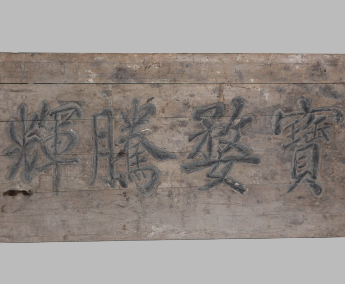 寶婺騰輝